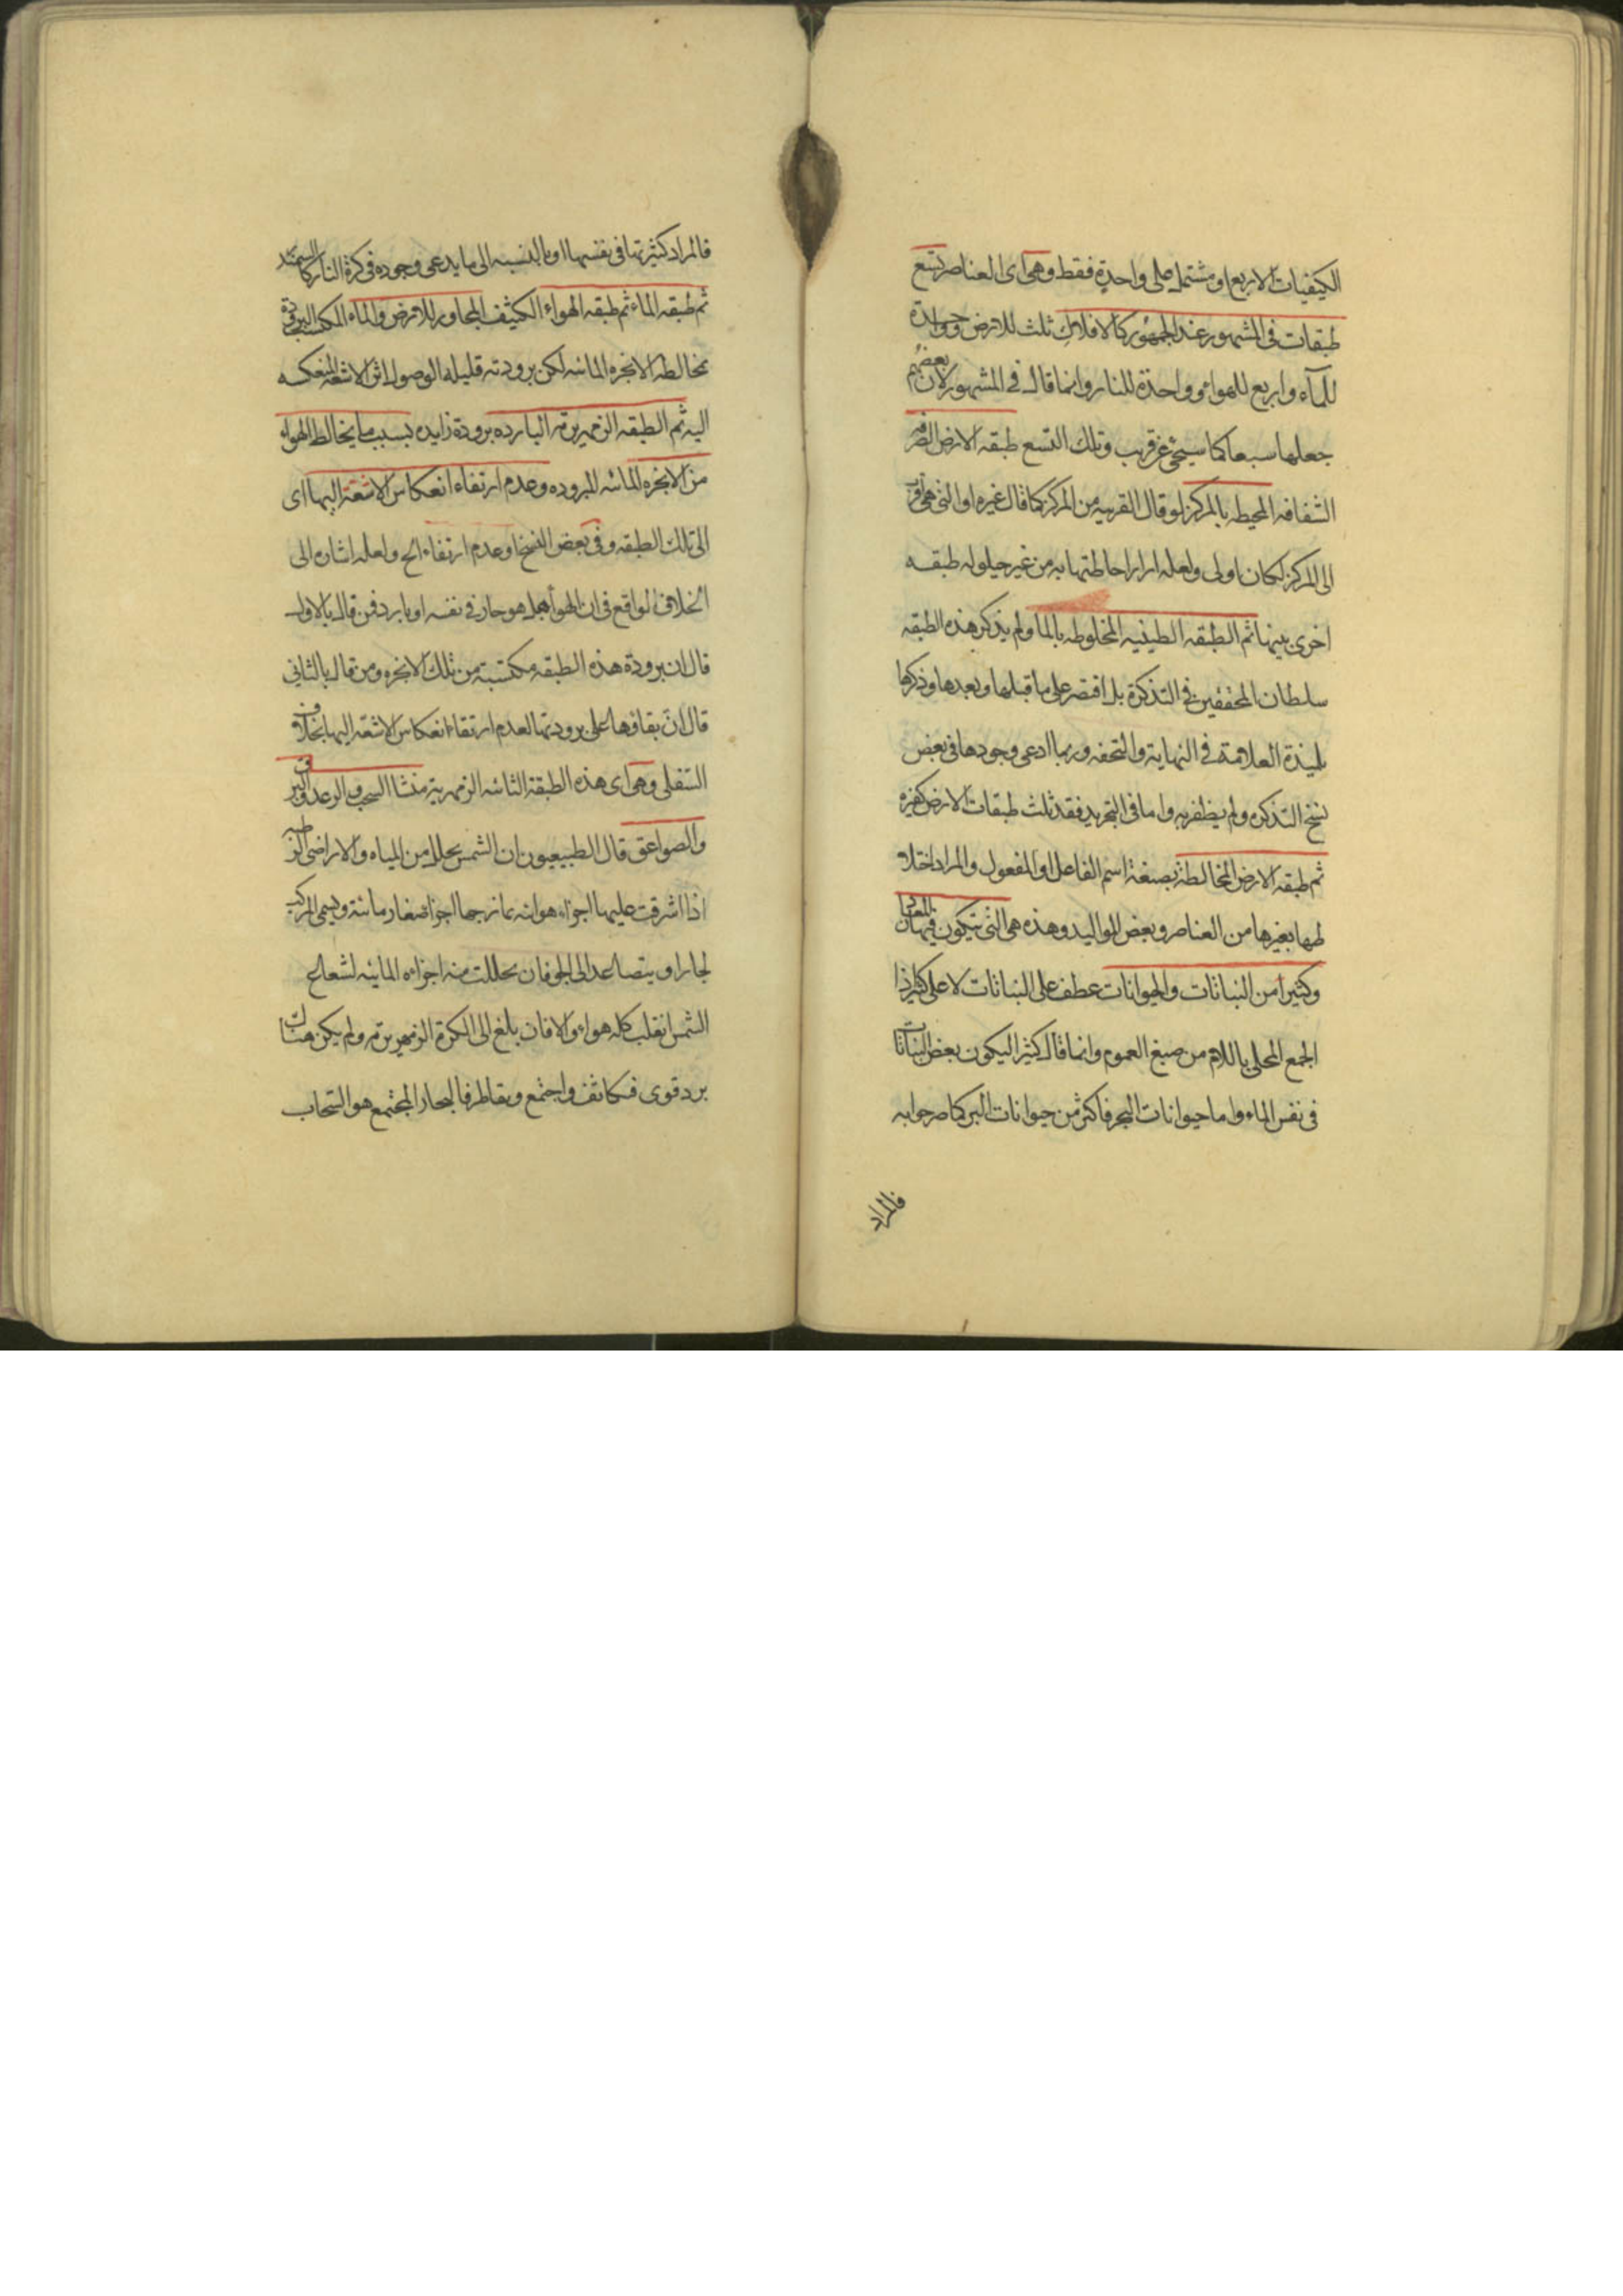 الكيفيات الاربع او مشتمل على واحدة فقط وهى اى العناصر تسع
طبقات فى المشهور عند الجمهور كالافلاك ثلث للارض وواحدة
للمآء واربع للهواء وواحدة للنار وانما قال فى المشهور لان بعضهم
جعلها سبعا كما سيجئ عن قريب وتلك التسع طبقة الارض الصرفه
الشفافه المحيطه بالمركز لو قال القريبه من المركز كما قال غيره او التى هى اقرب
الى المركز لكان اولى ولعله اراد احاطتها به من غير حيلوله طبقه
اخرى بينهما ثم الطبقه الطينيه المخلوطه بالما ولم يذكر هذه الطبقه
سلطان المحققين فى التذكرة بل اقتصر على ما قبلها وبعدها وذكرها
تلميذة العلامة فى النهاية والتحفه وربما ادعى وجودها فى بعض
نسخ التذكره ولم يظفر به واما فى التجريد فقد ثلث طبقات الارض كغيره
ثم طبقه الارض المخالطة بصيغة اسم الفاعل او المفعول والمراد اختلا
طها بغيرها من العناصر وبعض المواليد وهذه هى التى تتكون فيها المعادن
وكثيرا من النباتات والحيوانات عطف على النباتات لا على كثير اذا
الجمع المحلى باللام من صيغ العموم وانما قال كثيرا ليكون بعض النباتات
فى نفس الماء واما حيوانات البحر فاكثر من حيوانات البر كما صرحوا به
فالمراد
فالمراد كثرتها فى نفسها او بالنسبه الى ما يدعى وجوده فى كرة النار كالسمندر
ثم طبقه الماء ثم طبقه الهواء الكثيف المجاور للارض والماء المكتسب البرودة
بمخالطه الابخره المائيه لكن برودته قليله لوصول اثر الاشعه المنعكسه
اليه ثم الطبقه الزمهريرية البارده برودة زايده بسبب ما يخالط الهواء
من الابخره المائيه المبروده وعدم ارتقاء انعكاس الاشعة اليها اى
الى تلك الطبقه وفى بعض النسخ او عدم ارتقاء الخ ولعله اشاره الى
الخلاف الواقع فى ان الهوأ هل هو حار فى نفسه او بارد فمن قال بالاول
قال ان برودة هذه الطبقه مكتسبة من تلك الابخره ومن قال بالثانى
قال ان بقاؤها على برودتها لعدم ارتقاء انعكاس الاشعة اليها بخلاف
السفلى وهى اى هذه الطبقة الثانيه الزمهريرية منشا السحب والرعد والبرق
والصواعق قال الطبيعيون ان الشمس يحلل من المياه والاراضى الرطبه
اذا اشرقت عليها اجزاء هوائيه يمازجها اجزا صغار مائية ويسمى المركب
بخارا ويتصاعد الى الجو فان تحللت منه اجزاءه المائيه لشعاع
الشمس انقلب كله هواء والا فان بلغ الى الكرة الزمهريرية ولم يكن هناك
برد قوى فتكاثف واجتمع وتقاطر فالبخار المجتمع هو السحاب